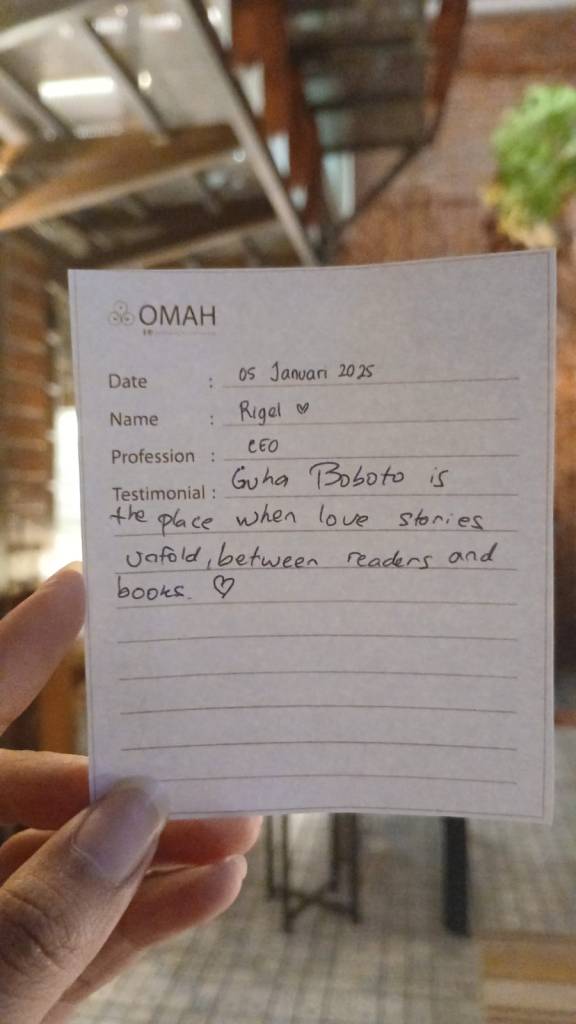 OMAH
Date : 05 Januari 2025
Name : Rigel ♡
Profession : CEO
Testimonial : Guha Boboto is
the place when love stories
unfold, between readers and
books. ♡